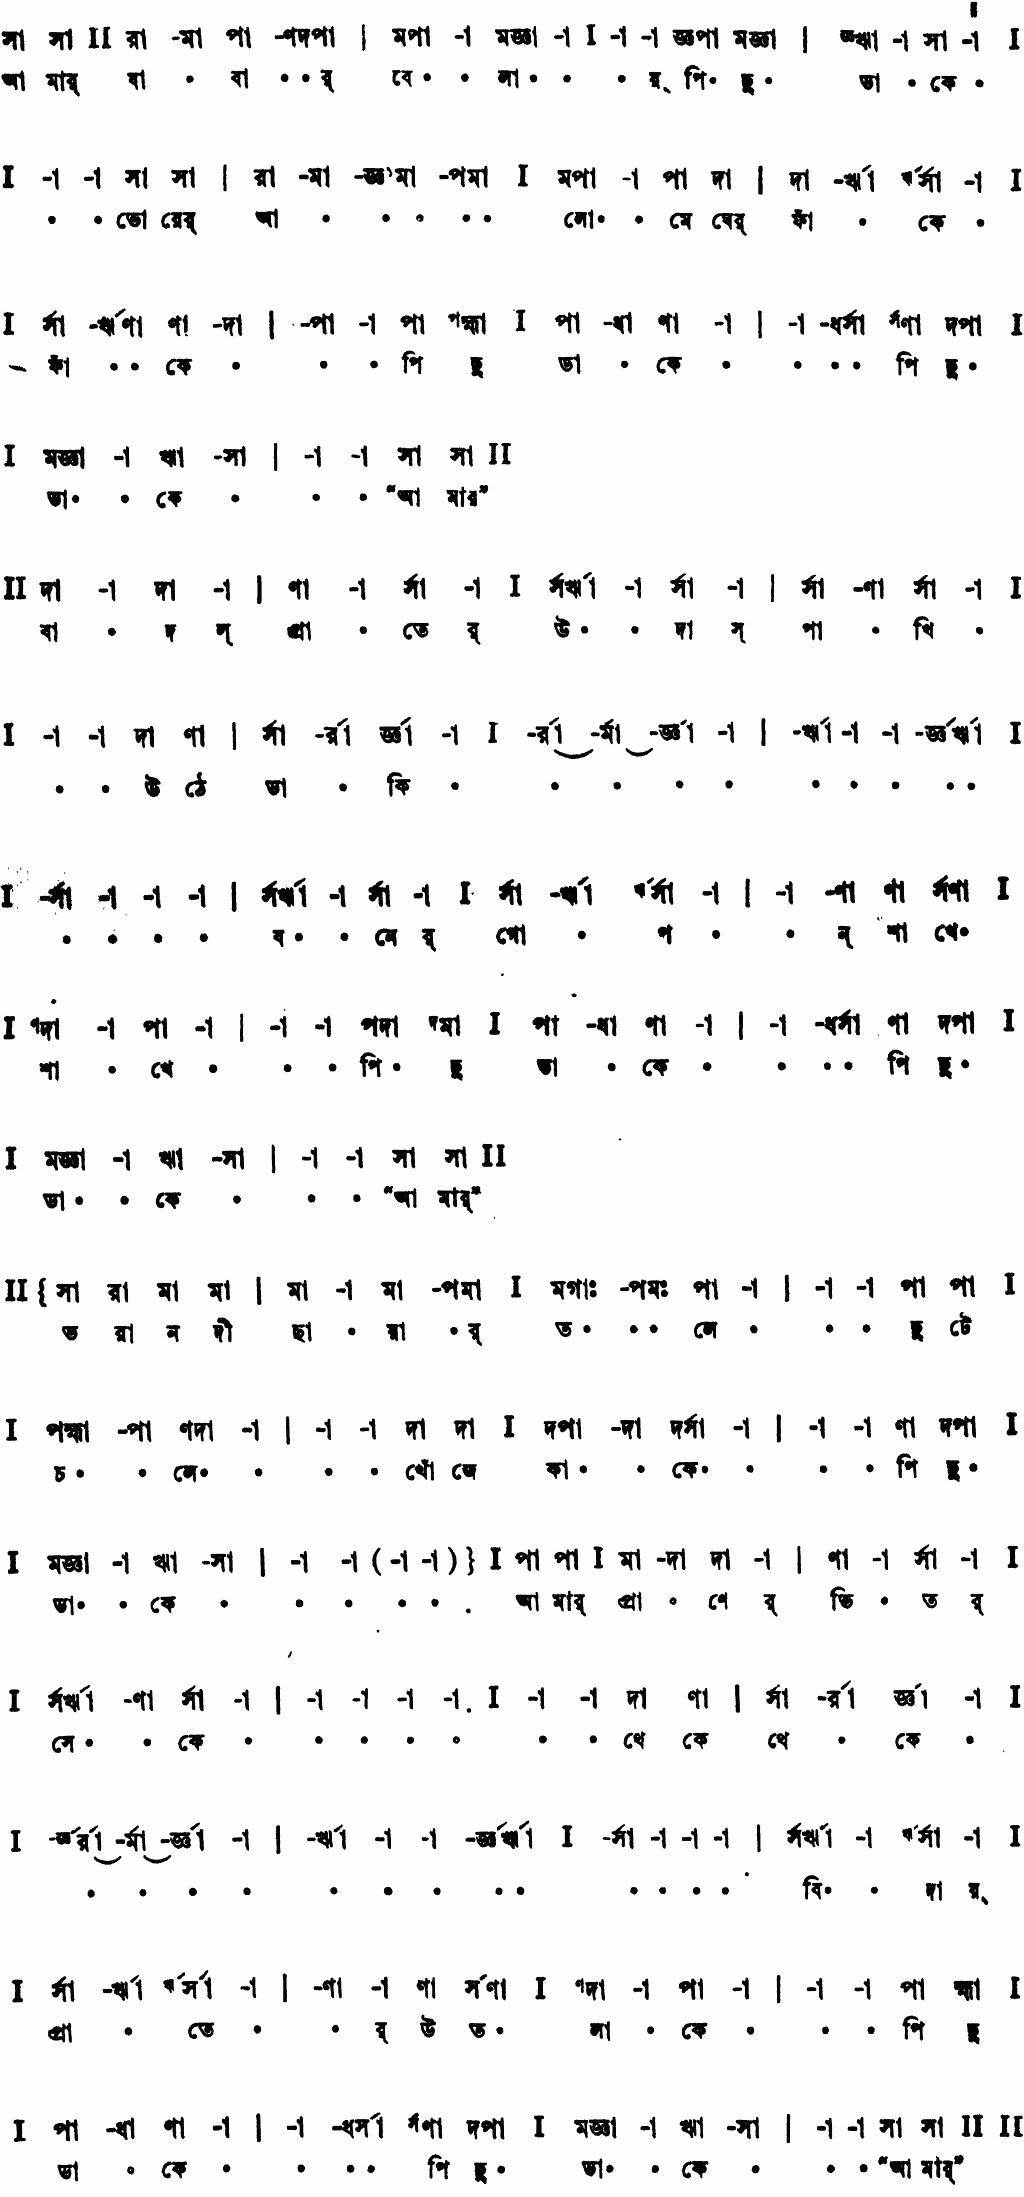 সা সা II রা -মা পা -ণদপা | মপা -া মজ্ঞা -া I -া -া জ্ঞপা মজ্ঞা | জ্ঞঋা -া সা -া I
আ মার্ যা • বা • • র্ বে • • লা • • • য়্ পি • ছু • ডা • কে •
I -া -া সা সা | রা -মা -জ্ঞমা -পমা I মপা -া পা দা | দা -র্ঋা র্ঋর্সা -া I
• • ভো রের্ আ • • • • • লো • • মে ঘের্ ফাঁ • কে •
I র্সা -র্ঋণা ণা -দা | -পা -া পা পহ্মা I পা -ধা ণা -া | -া -ধর্সা র্সণা দপা I
– ফাঁ • • কে • • • পি ছু ডা • কে • • • • পি ছু •
I মজ্ঞা -া ঋা -সা | -া -া সা সা II
ডা • • কে • • • “আ মার”
II দা -া দা -া | ণা -া র্সা -া I র্সর্ঋা -া র্সা -া | র্সা -ণা র্সা -া I
বা • দ ল্ প্রা • তে র্ উ • • দা স্ পা • খি •
I -া -া দা ণা | র্সা -র্রা র্জ্ঞা -া I -র্রা -র্মা -র্জ্ঞা -া | -র্ঋা -া -া -র্জ্ঞর্ঋা I
• • উ ঠে ডা • কি • • • • • • • • • •
I -র্সা -া -া -া | র্সর্ঋা -া র্সা -া I র্সা -র্ঋা র্ঋর্সা -া | -া -ণা ণা র্সণা I
• • • • ব • • নে র্ গো • প • • ন্ শা খে •
I ণদা -া পা -া | -া -া পদা দমা I পা -ধা ণা -া | -া -ধর্সা ণা দপা I
শা • খে • • • পি • ছু ডা • কে • • • • পি ছু •
I মজ্ঞা -া ঋা -সা | -া -া সা সা II
ডা • • কে • • • “আ মার্”
II { সা রা মা মা | মা -া মা -পমা I মগাঃ -পমঃ পা -া | -া -া পা পা I
ভ রা ন দী ছা • য়া • র্ ত • • • লে • • • ছু টে
I পহ্মা -পা ণদা -া | -া -া দা দা I দপা -দা দর্সা -া | -া -া ণা দপা I
চ • • লে • • • • খোঁ জে কা • • কে • • • • পি ছু •
I মজ্ঞা -া ঋা -সা | -া -া (-া -া) } I পা পা I মা -দা দা -া | ণা -া র্সা -া I
ডা • • কে • • • • • আ মার্ প্রা • ণে র্ ভি • ত র্
I র্সর্ঋা -ণা র্সা -া | -া -া -া -া I -া -া দা ণা | র্সা -র্রা র্জ্ঞা -া I
সে • • কে • • • • • • • থে কে থে • কে •
I -র্জ্ঞর্রা -র্মা -র্জ্ঞা -া | -র্ঋা -া -া -র্জ্ঞর্ঋা I -র্সা -া -া -া | র্সর্ঋা -া র্ঋর্সা -া I
• • • • • • • • • • • • • বি • • দা য়্
I র্সা -র্ঋা র্ঋর্সা -া | -ণা -া ণা র্সণা I ণদা -া পা -া | -া -া পা হ্মা I
প্রা • তে • • র্ উ ত • লা • কে • • • পি ছু
I পা -ধা ণা -া | -া -ধর্সা র্সণা দপা I মজ্ঞা -া ঋা -সা | -া -া সা সা II II
ডা • কে • • • • পি ছু • ডা • • কে • • • “আ মার্”